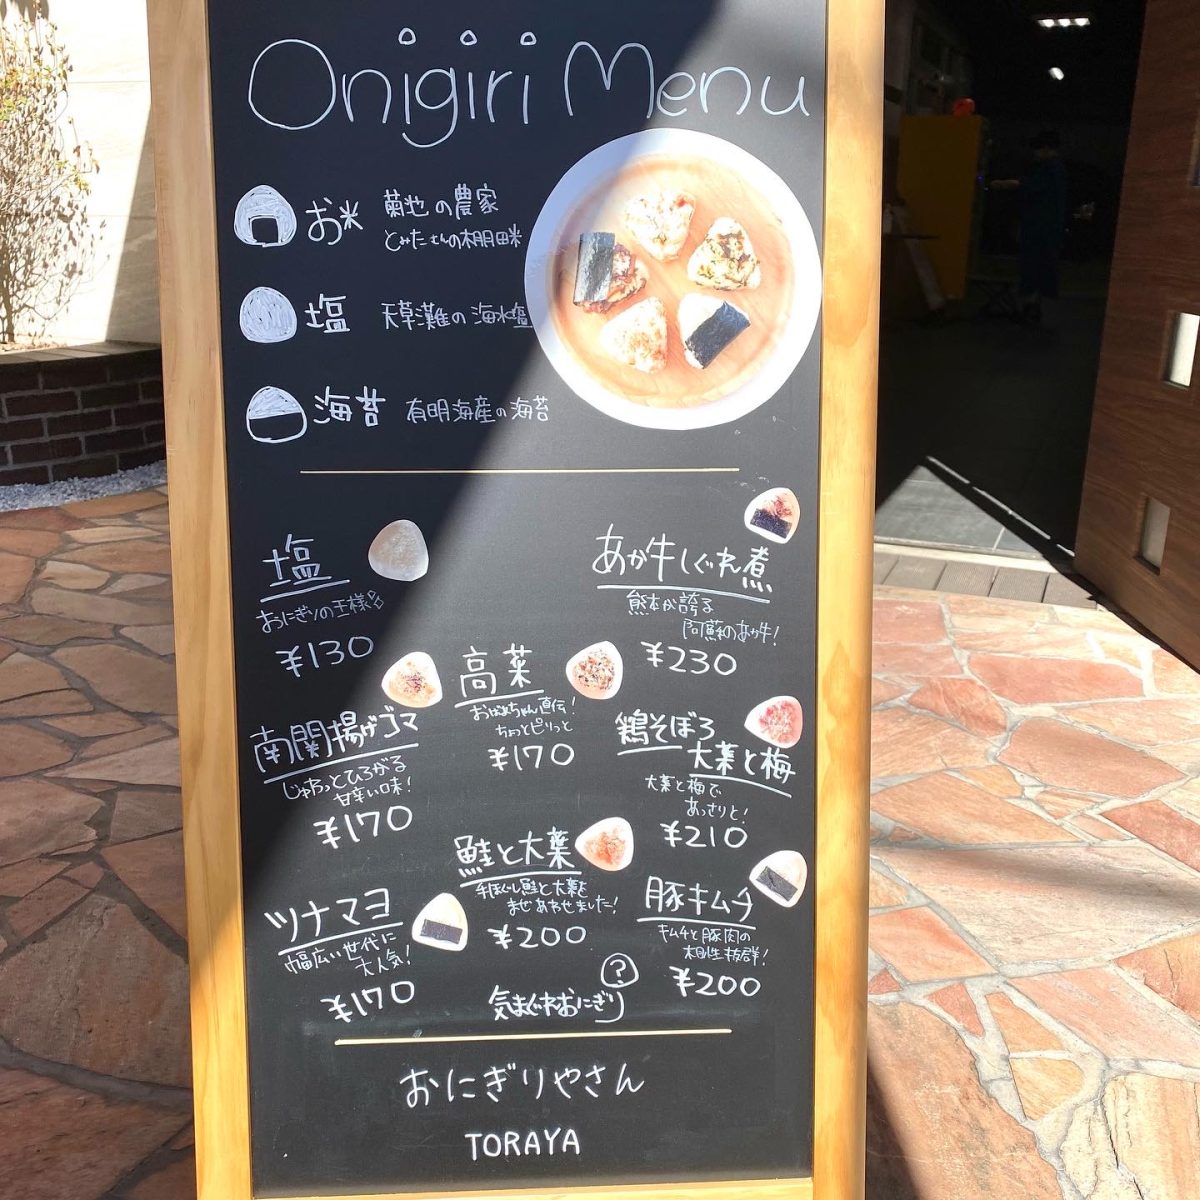 Onigiri Menu
お米 菊池の農家
とみたさんの棚田米
塩 天草灘の海水塩
海苔 有明海産の海苔
塩
おにぎりの王様
¥130
あか牛しぐれ煮
熊本が誇る
阿蘇のあか牛!
¥230
高菜
おばあちゃん直伝!
ちょっとピリっと
¥170
南関揚げゴマ
じゅわっとひろがる
甘辛い味!
¥170
鶏そぼろ
大葉と梅
大葉と梅で
あっさりと!
¥210
鮭と大葉
手ほぐし鮭と大葉を
まぜあわせました!
¥200
ツナマヨ
幅広い世代に
大人気!
¥170
豚キムチ
キムチと豚肉の
相性抜群!
¥200
?
気まぐれおにぎり
おにぎりやさん
TORAYA